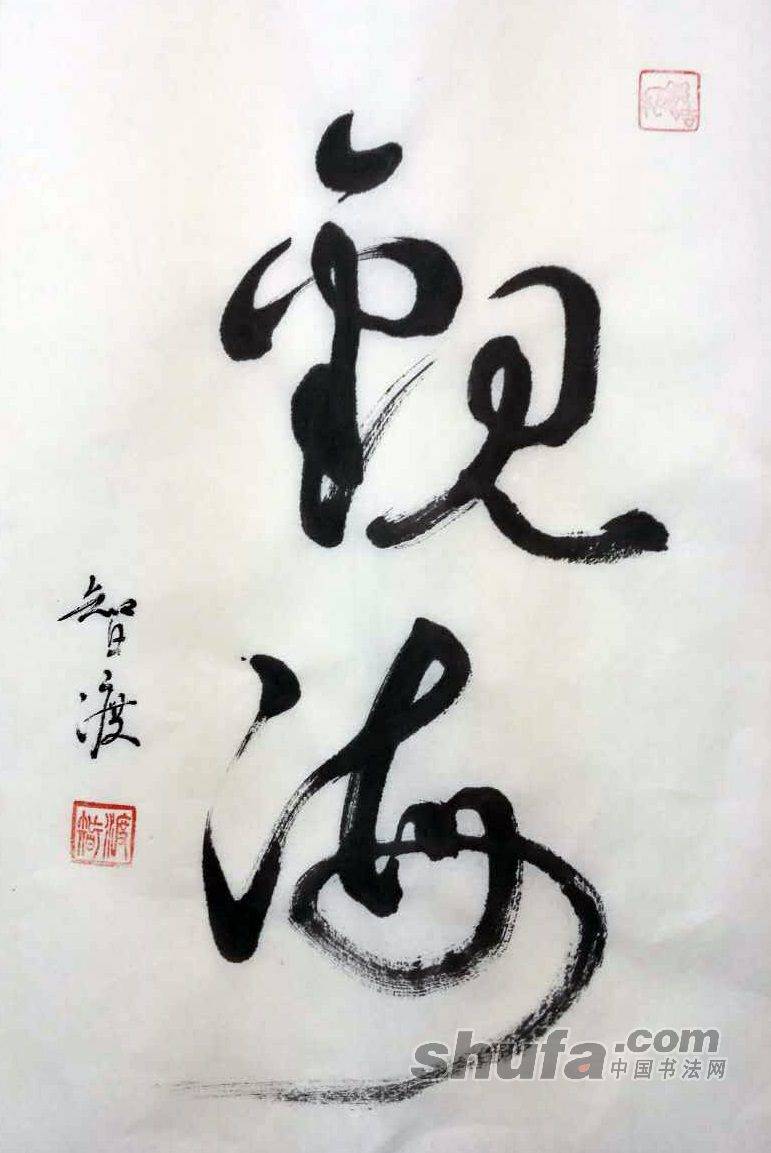 觀海
智渡
shufa.com
中国书法网